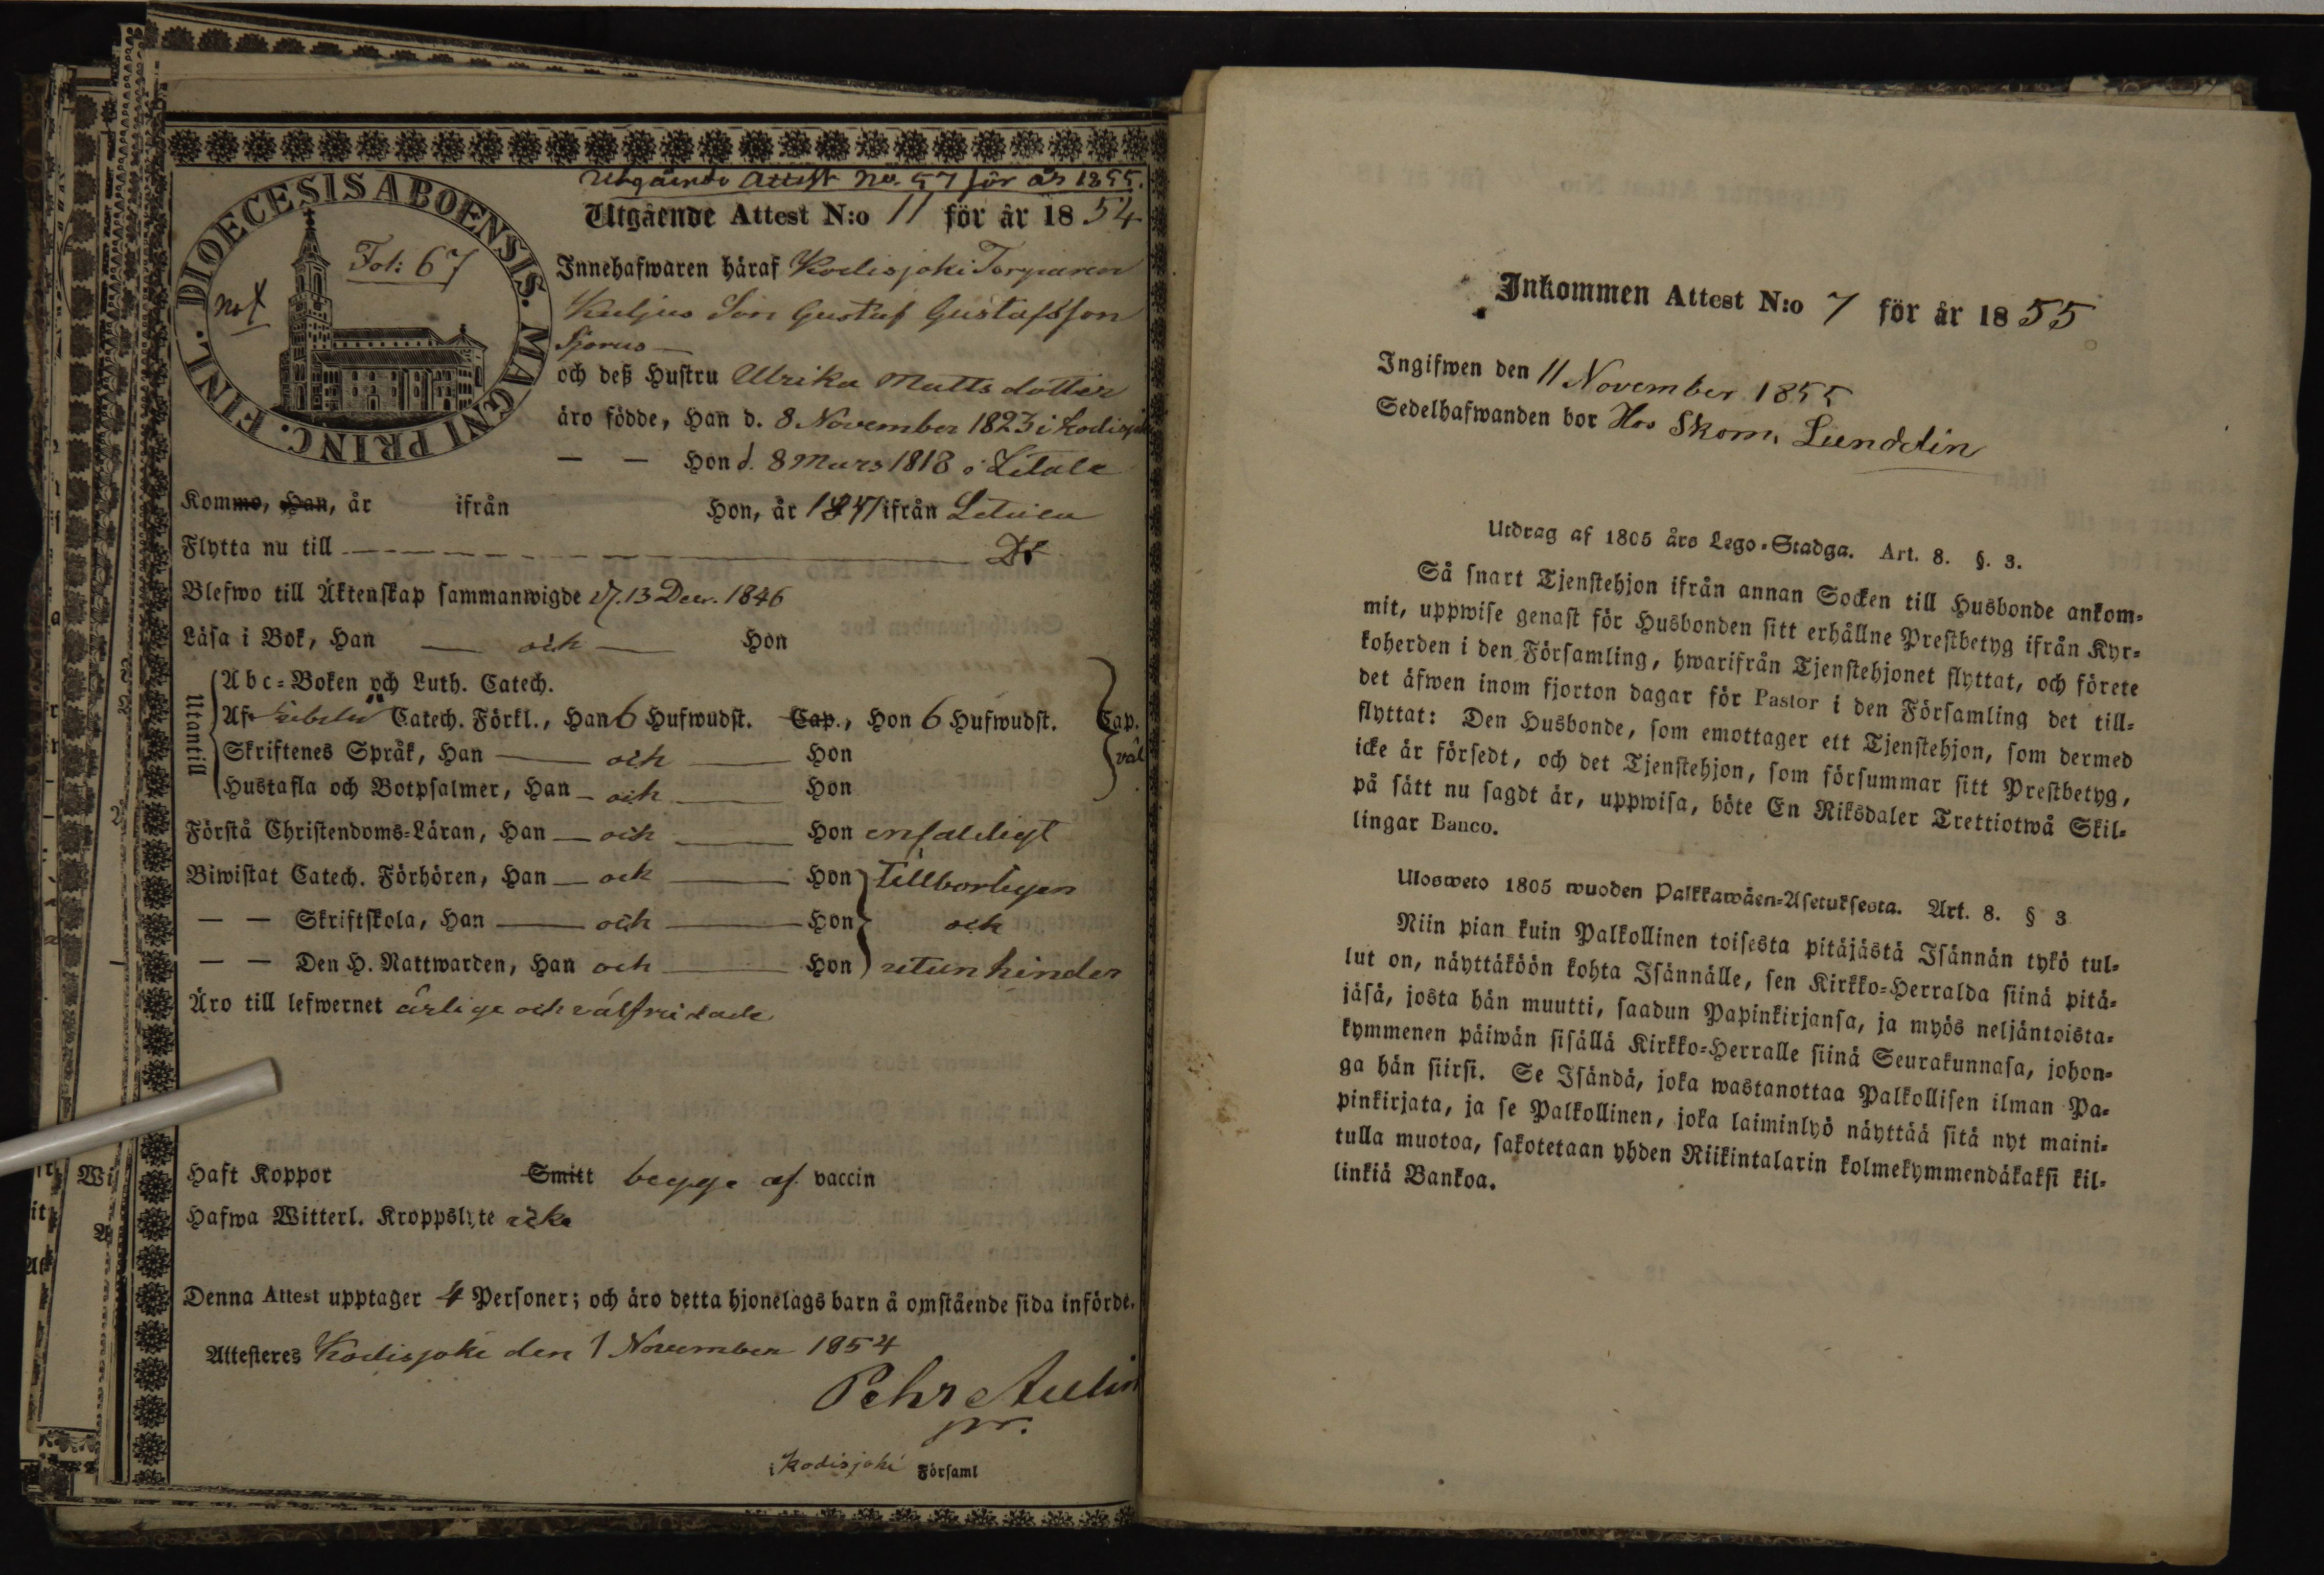 DIOECESIS ABOENSIS. MAGNI PRINC. FINL.
Fol: 67
Utgående Attest No. 57 för år 1855.
Utgående Attest N:o 11 för år 1854
Innehafwaren häraf Kodisjoki Torparen
Son Gustaf Gustafsson
och deß Hustru Ulrika Mattsdotter
äro födde, Han d. 8 November 1823 i Kodisjoki
— — Hon d. 8 Mars 1818 i Letala
Kommo, Han, år ifrån Hon, år 1847 ifrån
Flytta nu till
Blefwo till Äktenskap sammanwigde d. 13 Decr. 1846
Läsa i Bok, Han — och — Hon
Utantill
Abc-Boken och Luth. Catech.
Af Catech. Förkl., Han 6 Hufwudst. Cap., Hon 6 Hufwudst. Cap.
Skriftenes Språk, Han — och — Hon väl
Hustafla och Botpsalmer, Han — och — Hon
Förstå Christendoms-Läran, Han — och — Hon enfaldigt
Biwistat Catech. Förhören, Han — och — Hon tillbörligen
— — Skriftskola, Han — och — Hon och
— — Den H. Nattwarden, Han och — Hon utan hinder
Äro till lefwernet ärlige och välfrejdade
Haft Koppor Smitt begge af vaccin
Hafwa Witterl. Kroppslyte icke
Denna Attest upptager 4 Personer; och äro detta hjonelags barn å omstående sida införde.
Attesteres Kodisjoki den 1 November 1854
Pehr Aulin
i Kodisjoki Församl
Inkommen Attest N:o 7 för år 1855
Ingifwen den 11 November 1855
Sedelhafwanden bor Hos Skom. Lundelin
Utdrag af 1805 års Lego-Stadga. Art. 8. §. 3.
Så snart Tjenstehjon ifrån annan Socken till Husbonde ankom-
mit, uppwise genast för Husbonden sitt erhållne Prestbetyg ifrån Kyr-
koherden i den Församling, hwarifrån Tjenstehjonet flyttat, och förete
det äfwen inom fjorton dagar för Pastor i den Församling det till-
flyttat: Den Husbonde, som emottager ett Tjenstehjon, som dermed
icke är försedt, och det Tjenstehjon, som försummar sitt Prestbetyg,
på sätt nu sagdt är, uppwisa, böte En Riksdaler Trettiotwå Skil-
lingar Banco.
Ulosweto 1805 wuoden Palkkawäen-Asetuksesta. Art. 8. § 3
Niin pian kuin Palkollinen toisesta pitäjästä Isännän tykö tul-
lut on, näyttäköön kohta Isännälle, sen Kirkko-Herralda siinä pitä-
jäsä, josta hän muutti, saadun Papinkirjansa, ja myös neljäntoista-
kymmenen päiwän sisällä Kirkko-Herralle siinä Seurakunnasa, johon-
ga hän siirsi. Se Isändä, joka wastanottaa Palkollisen ilman Pa-
pinkirjata, ja se Palkollinen, joka laiminlyö näyttää sitä nyt maini-
tulla muotoa, sakotetaan yhden Riikintalarin kolmekymmendäkaksi kil-
linkiä Bankoa.